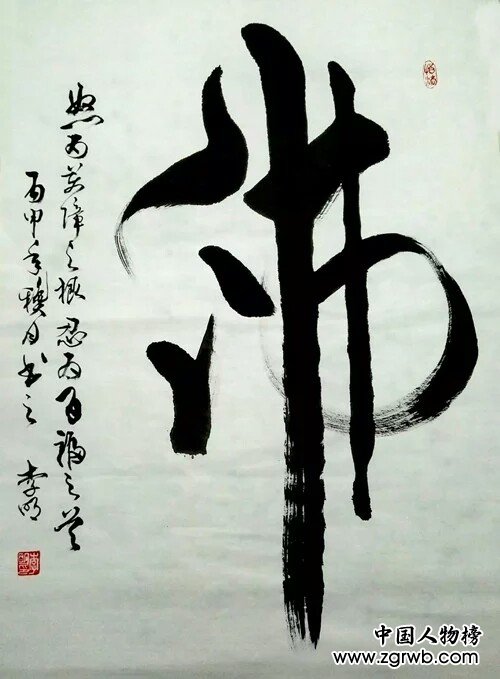 佛
怒为萬障之根忍为百福之首
丙申年月书之 李明
中国人物榜
www.zgrwb.com